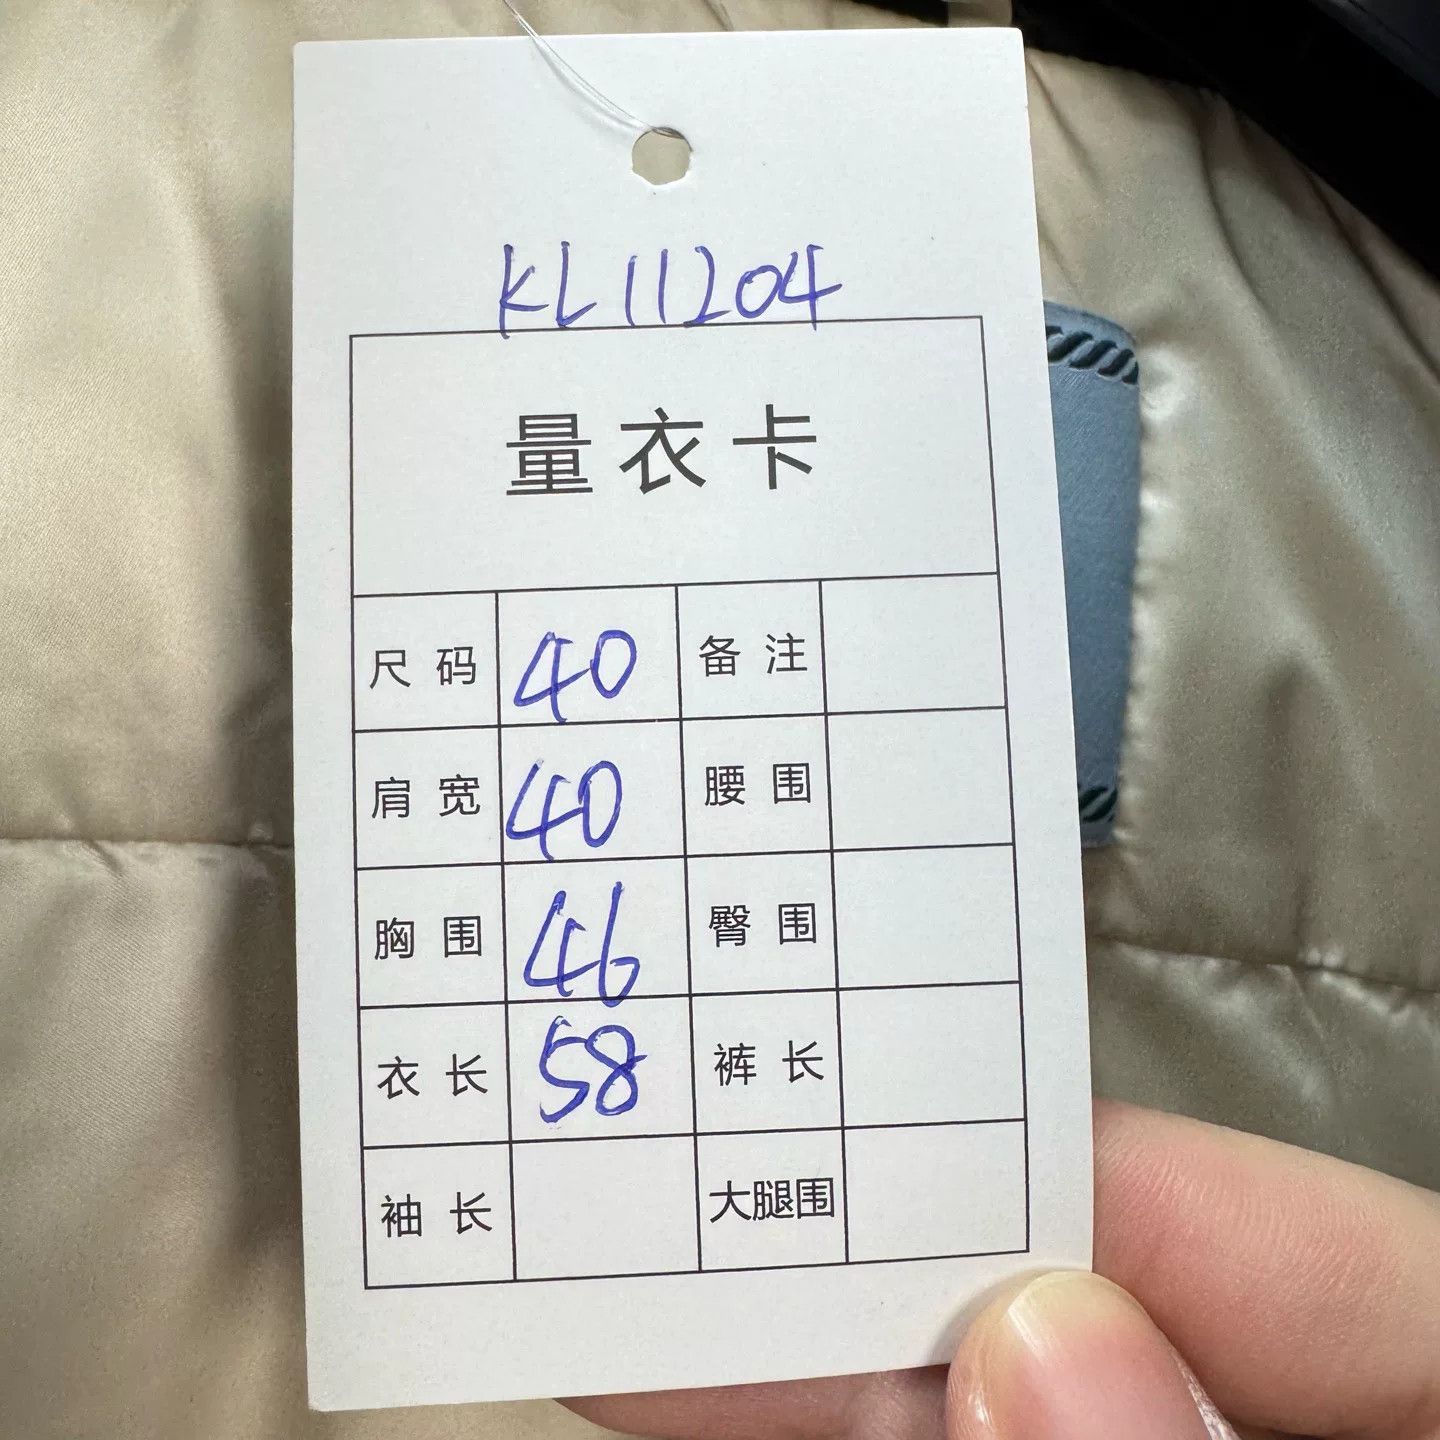 KL11204
量衣卡
尺码 40 备注
肩宽 40 腰围
胸围 46 臀围
衣长 58 裤长
袖长 大腿围